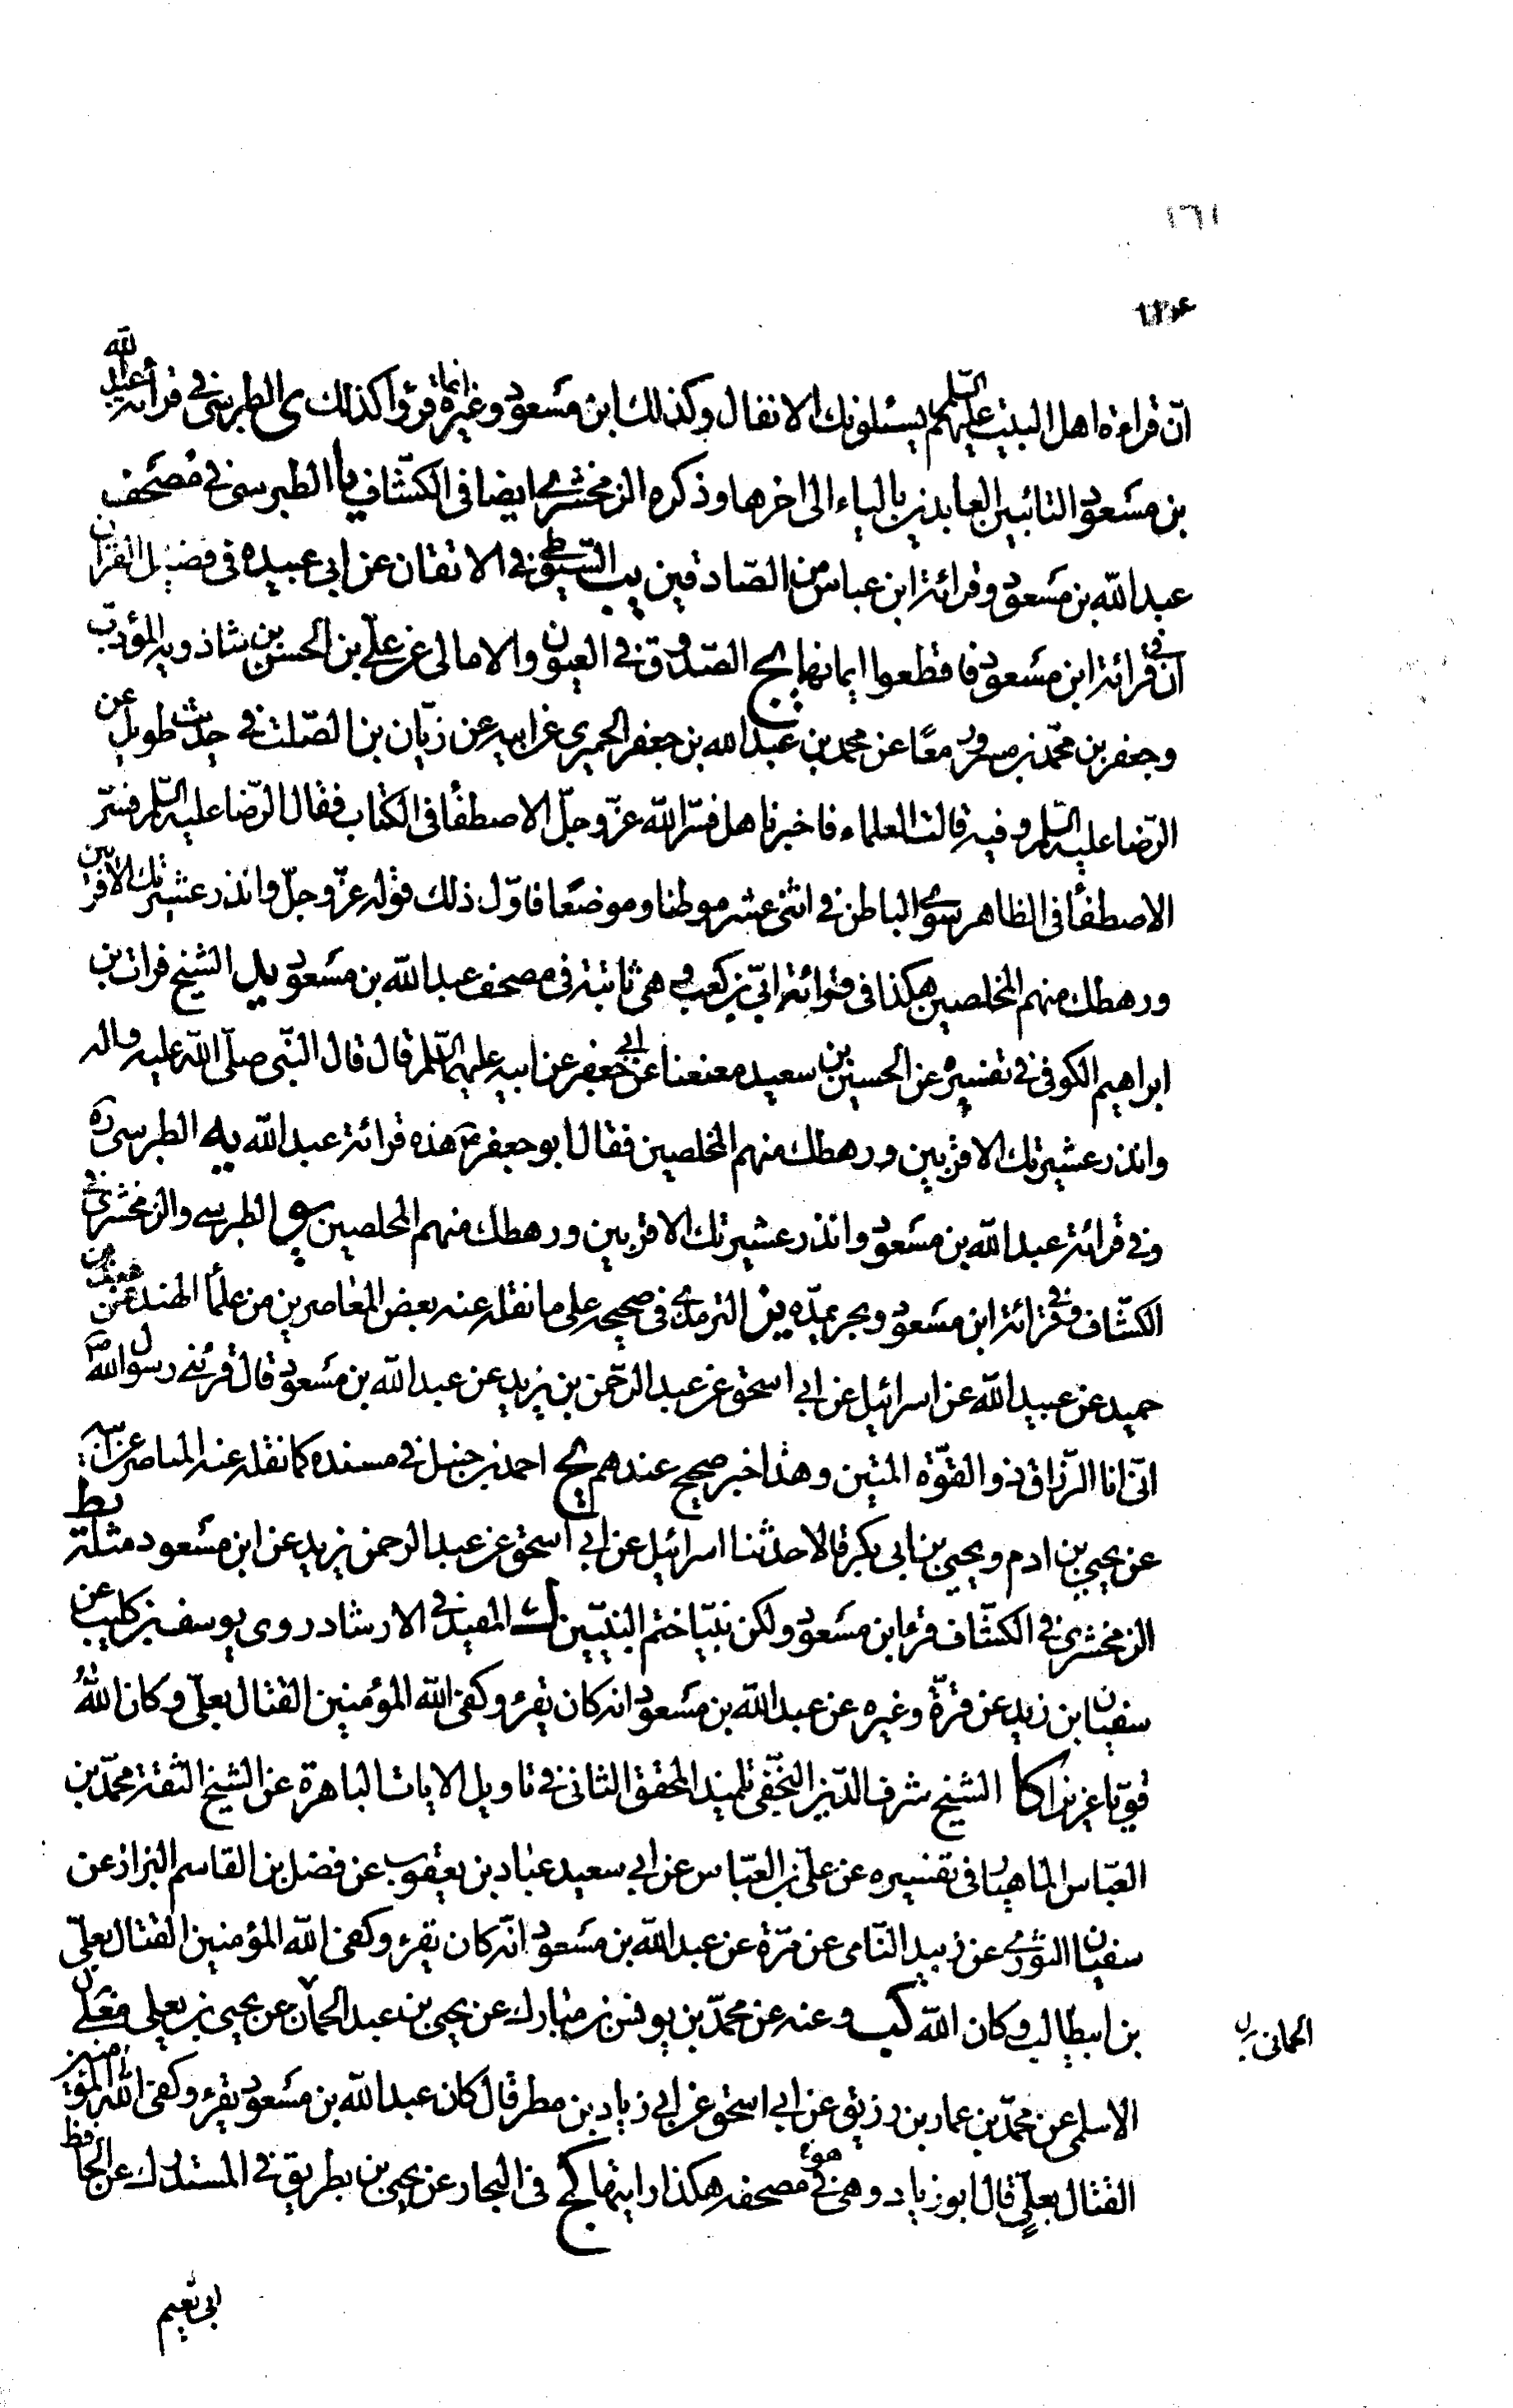 ١٦١
انّ قراءة اهل البيت عليهم السّلم يسئلونك الانفال وكذلك ابن مسعود وغيره انما قرؤا كذلك ى الطبرسى فى قرائة عبد الله
بن مسعود التائبين العابدين بالياء الى اخرها وذكره الزمخشرى ايضا فى الكشّاف يا الطبرسى فى مصحف
عبد الله بن مسعود وقرائة ابن عباس من الصّادقين يب السّيوطى فى الاتقان عن ابى عبيده فى فضايل القران
ان فى قرائة ابن مسعود فاقطعوا ايمانها يج الصّدوق فى العيون والامالى عن علىّ بن الحسين بن شاذويه المؤدّب
وجعفر بن محمّد بن مسرور معًا عن محمد بن عبد الله بن جعفر الحميرى عن ابيه عن زيّان بن الصّلت فى حديث طويل عن
الرّضا عليه السّلم وفيه قالت العلماء فاخبرنا هل فسّر الله عزّ وجلّ الاصطفأ فى الكتاب فقال الرّضا عليه السّلم فسّر
الاصطفأ فى الظاهر سوى الباطن فى اثنى عشر موطنا وموضعًا فاوّل ذلك قوله عزّ وجلّ وانذر عشيرتك الاقربين
ورهطك منهم المخلصين هكذا فى قرائة ابىّ بن كعب وهى ثابتة فى مصحف عبد الله بن مسعود يد الشيخ فرات بن
ابراهيم الكوفى فى تفسيره عن الحسين بن سعيد معنعنا عن ابى جعفر عن ابيه عليهما السّلم قال قال النّبى صلّى الله عليه واله
وانذر عشيرتك الاقربين ورهطك منهم المخلصين فقال ابو جعفرؑ هذه قرائة عبد الله يه الطبرسى ره
وفى قرائة عبد الله بن مسعود وانذر عشيرتك الاقربين ورهطك منهم المخلصين يو الطبرسى والزمخشرى فى
الكشّاف وفى قرائة ابن مسعود يز الترمذى فى صحيحه على ما نقله عنه بعض المعاصرين من علمأ الهند عن
حميد عن عبيد الله عن اسرائيل عن ابى اسحق عن عبد الرّحمن بن يزيد عن عبد الله بن مسعود قال قرئنى رسول اللهؐ
انّى انا الرّزاق ذو القوّة المتين وهذا خبر صحيح عندهم يح احمد بن حنبل فى مسنده كما نقله عنه المعاصر
عن يحيى بن ادم ويحيى بن ابى بكر قالا حدثنا اسرائيل عن ابى اسحق عن عبد الرحمن بن يزيد عن ابن مسعود مثله يط
الزمخشرى فى الكشّاف قرء ابن مسعود ولكن نبيّا ختم النبيّين ك المفيد فى الارشاد روى يوسف بن كليب عن
سفيان بن زيد عن قرّة وغيره عن عبد الله بن مسعود انه كان يقرء وكفى الله المؤمنين القتال بعلىّ وكان الله
قويّا عزيزا كا الشيخ شرف الدّين النّجفى تلميذ المحقق الثانى فى تاويل الايات الباهرة عن الشيخ الثقة محمّد بن
العبّاس الماهيار فى تفسيره عن علىّ بن العبّاس عن ابى سعيد عباد بن يعقوب عن فضل بن القاسم البزاز عن
سفيان الثورى عن زبيد النّامى عن مرّة عن عبد الله بن مسعود انّه كان يقرء وكفى الله المؤمنين القتال بعلىّ
بن ابيطالب وكان الله كب وعنه عن محمّد بن يونس بن مبارك عن يحيى بن عبد الحمان عن يحيى بن يعلى
الحمانى ل
الاسلمى عن محمّد بن عمار بن رزيق عن ابى اسحق عن ابى زياد بن مطر قال كان عبد الله بن مسعود يقرء وكفى الله المؤمنين
القتال بعلىّ قال ابو زياد وهى فى مصحفه هكذا رايتها كج فى البحار عن يحيى بن بطريق فى المستدرك عن الحافظ
ابى نعيم